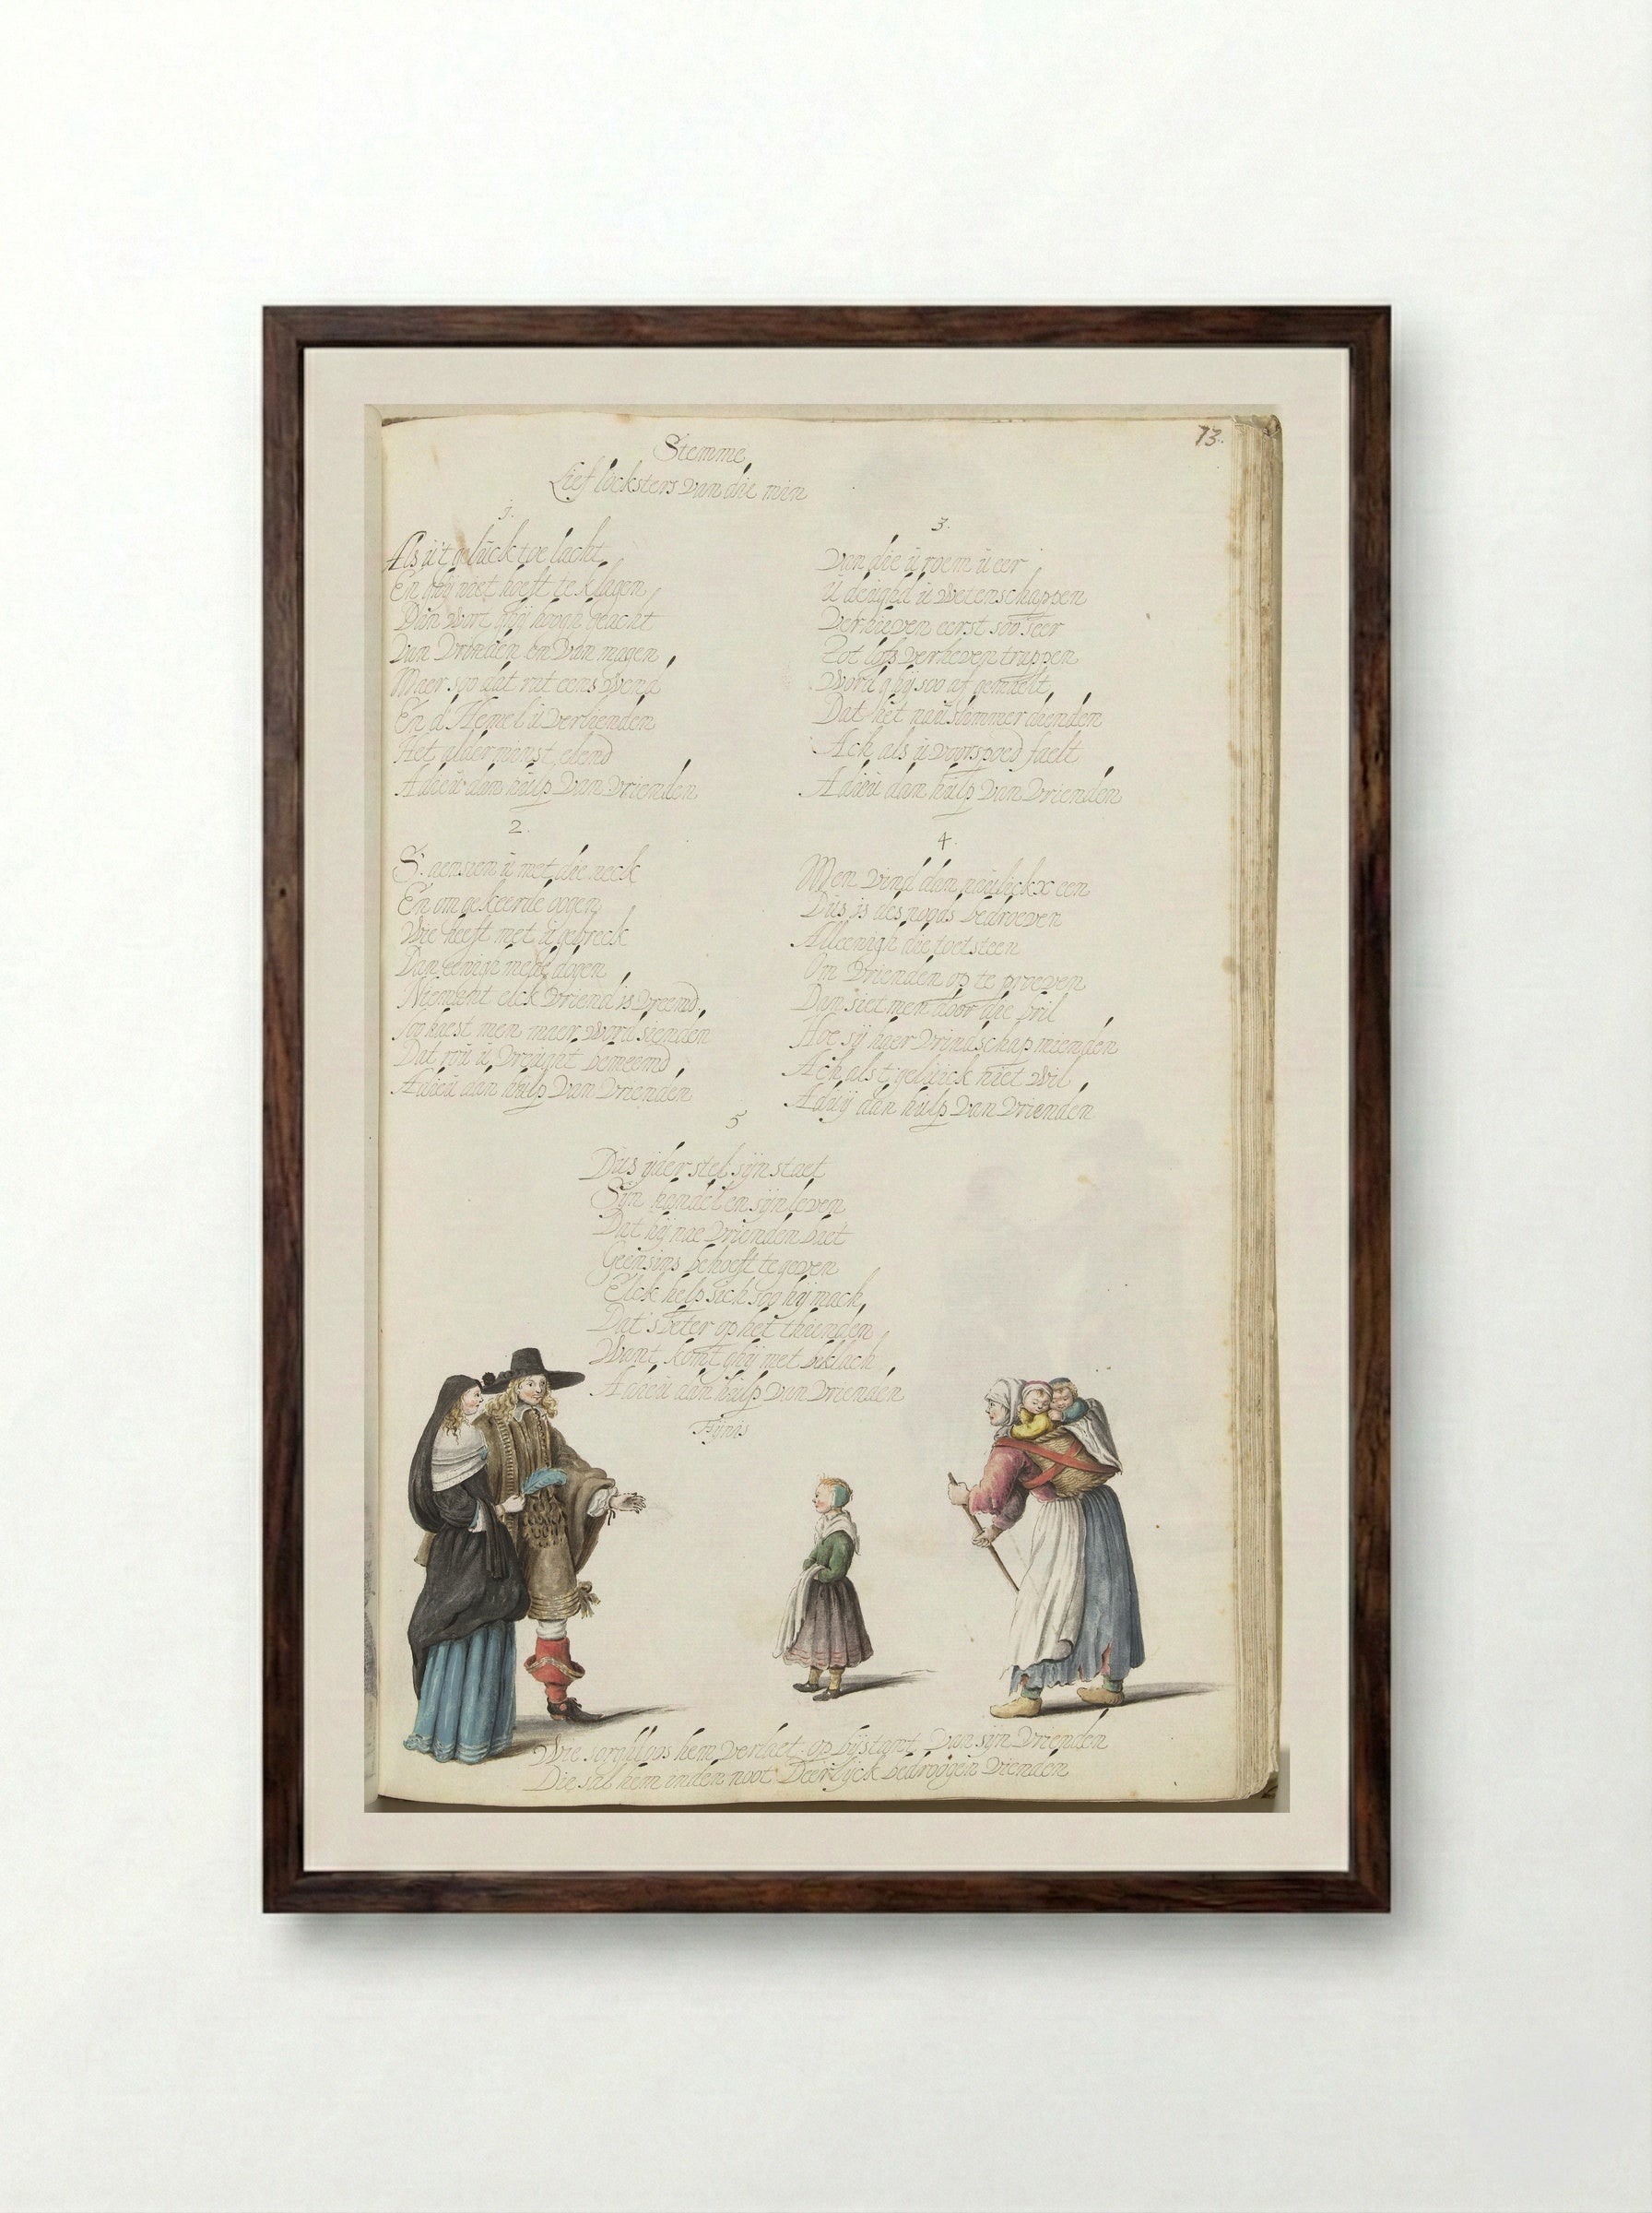 73.
Stemme
Lief locksters van die min
1.
Als u't gluck toe lacht
En ghij niet hoeft te klagen
Dan wort ghij hoogh geacht
Van Vrinden en Van magen
Maer soo dat rat eens Wend
En d'Hemel u verlienden
Het aldermenst elend
Adieu dan hulp Van Vrienden
2.
S. aensien u met die neck
En omgekeerde oogen
Wie heeft met u gebreck
Dan eenigh mede dogen
Niemant elck Vriend is Vreemd
Soo haest men maer Word sienden
Dat u Vreught
Adieu dan hulp Van Vrienden
3.
Van die u roem u eer
u deughd u Wetenschappen
Verhieven eerst soo seer
Tot lofs Verheven trappen
Word ghij soo af gemaelt
Dat het nau slimmer dienden
Ach als u voorspoed faelt
Adieu dan hulp Van Vrienden
4.
Men Vind dan naulickx een
Dus is des noods bedroeven
Alleenigh die toetsteen
Om Vrienden op te proeven
Dan siet men door die bril
Hoe sij haer Vrindschap mienden
Ach als t'geluick niet Wil
Aduij dan hulp Van Vrienden
5
Dus ijder stel sijn staet
Sijn handel en sijn leven
Dat hij nae Vrienden baet
Geensins behoeft te geven
Elck help sich soo hij mach
Dat's beter op het thienden
Want komt ghij met beklach
Adieu dan hulp Van Vrienden
Fijnis
Wie sorghloos hem Verlaet op bijstant Van sijn Vrienden
Die sal hem inden noot Deerlijck bedroogen Vienden